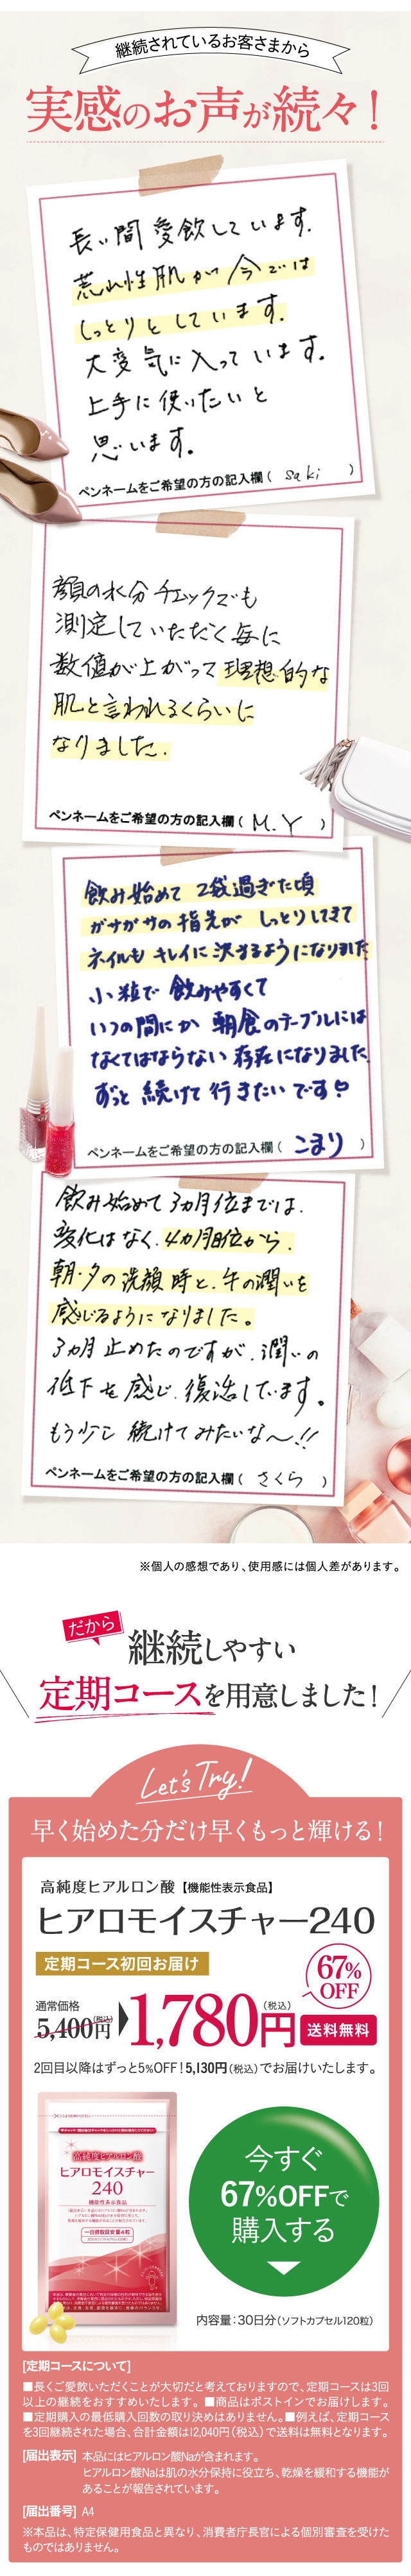 継続されているお客さまから
実感のお声が続々！
長い間愛飲しています.
荒れ性肌が今では
しっとりとしています.
大変気に入っています.
上手に使いたいと
思います.
ペンネームをご希望の方の記入欄（ saki ）
顔の水分チェックでも
測定していただく毎に
数値が上がって理想的な
肌と言われるくらいに
なりました.
ペンネームをご希望の方の記入欄（ M.Y ）
飲み始めて2袋過ぎた頃
ガサガサの指先がしっとりしてきて
ネイルもキレイに決まるようになりました
小粒で飲みやすくて
いつの間にか朝食のテーブルには
なくてはならない存在になりました.
ずっと続けて行きたいです
ペンネームをご希望の方の記入欄（ こまり ）
飲み始めて3ヵ月位までは.
変化はなく.4ヵ月目位から.
朝・夕の洗顔時と.手の潤いを
感じるようになりました。
3ヵ月止めたのですが.潤いの
低下を感じ.復活しています。
もう少し続けてみたいな〜!!
ペンネームをご希望の方の記入欄（ さくら ）
※個人の感想であり、使用感には個人差があります。
だから
継続しやすい
定期コースを用意しました！
Let's Try!
早く始めた分だけ早くもっと輝ける！
高純度ヒアルロン酸【機能性表示食品】
ヒアロモイスチャー240
定期コース初回お届け
67%
OFF
通常価格
5,400円(税込)
1,780円（税込）
送料無料
2回目以降はずっと5%OFF！5,130円（税込）でお届けいたします。
高純度ヒアルロン酸
ヒアロモイスチャー
240
機能性表示食品
一日摂取目安量4粒
今すぐ
67%OFFで
購入する
内容量：30日分（ソフトカプセル120粒）
[定期コースについて]
■長くご愛飲いただくことが大切だと考えておりますので、定期コースは3回
以上の継続をおすすめいたします。■商品はポストインでお届けします。
■定期購入の最低購入回数の取り決めはありません。■例えば、定期コース
を3回継続された場合、合計金額は12,040円（税込）で送料は無料となります。
[届出表示] 本品にはヒアルロン酸Naが含まれます。
ヒアルロン酸Naは肌の水分保持に役立ち、乾燥を緩和する機能が
あることが報告されています。
[届出番号] A4
※本品は、特定保健用食品と異なり、消費者庁長官による個別審査を受けた
ものではありません。